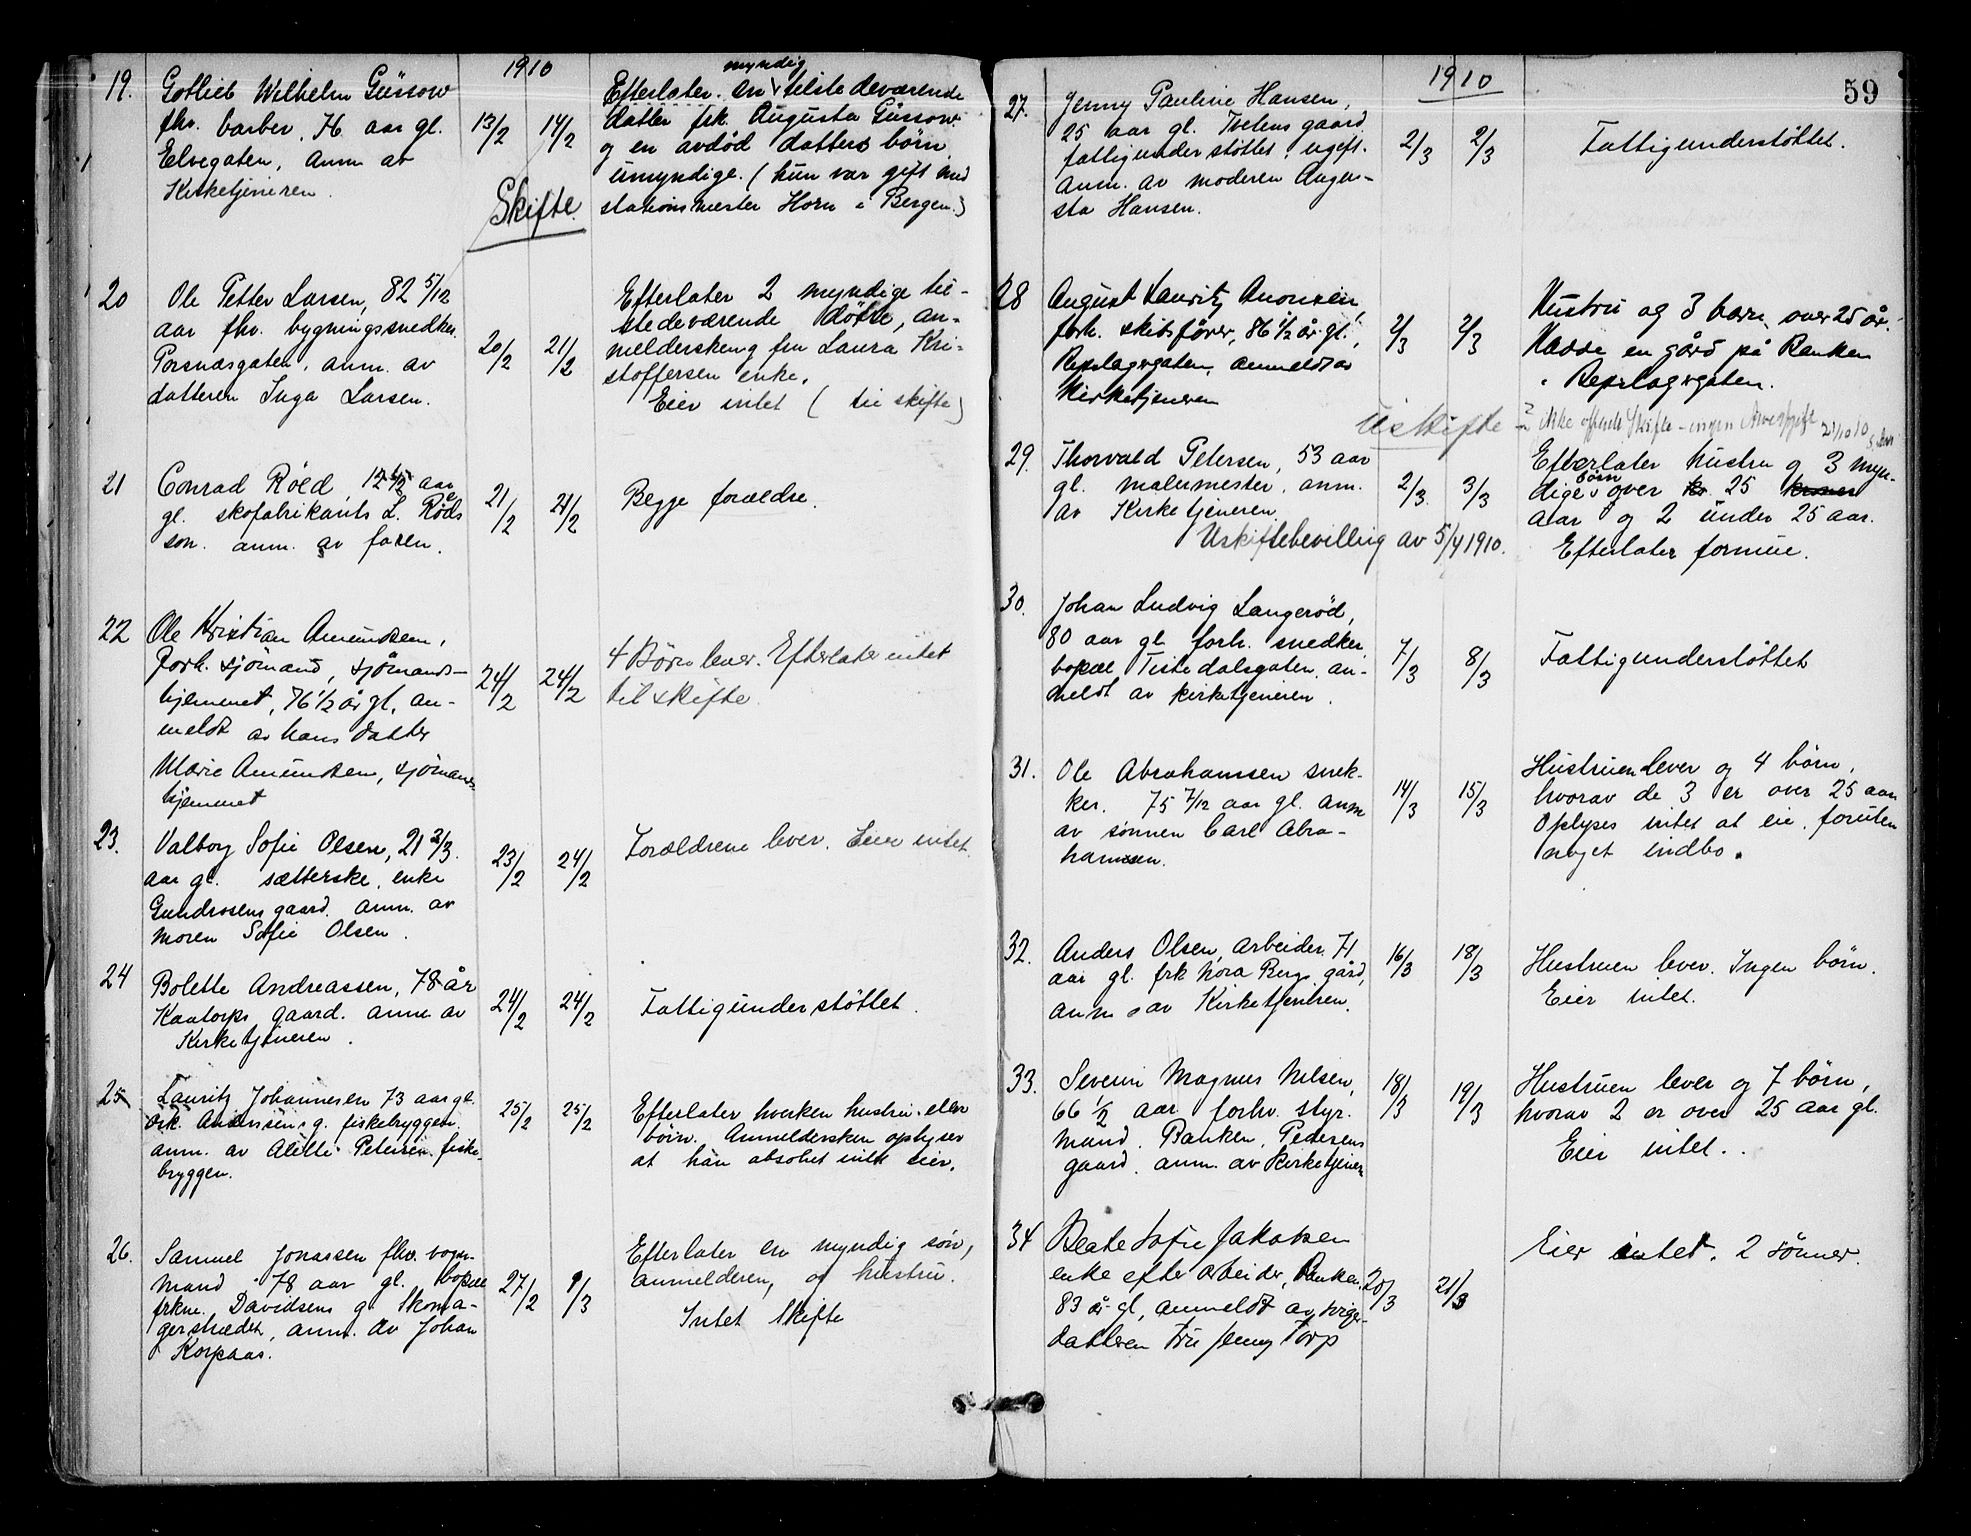 1910
19. Gotlieb Wilhelm Güssow
fhv. barber, 76 aar gl.
Elvegaten, anm av
Kirketjeneren.
13/2 14/2
Skifte.
myndig
Efterlater en tilstedeværende
datter frk. Augusta Güssow
og en avdød datters børn
umyndige. (hun var gift med
stationsmester Horn i Bergen.)
20 Ole Petter Larsen, 82 5/12
aar fhv. bygningssnedker
Porsnæsgaten, anm. av
datteren Inga Larsen.
20/2 21/2
Efterlater 2 myndige til-
stedeværende døtre, an-
meldersken og fru Laura Kri-
stoffersen enke.
Eier intet (til skifte)
21 Conrad Røed, 12 aar
gl. skofabrikants L. Røds
søn. anm. av faren.
21/2 21/2
Begge forældre.
22 Ole Kristian Amundsen,
forh. sjømand, sjømands-
hjemmet, 76 1/2 år gl. an-
meldt av hans datter
Marie Amundsen, sjømands
hjemmet
24/2 24/2
4 Børn lever. Efterlater intet
til skifte.
23. Valborg Sofie Olsen, 21 2/3
aar gl. sætterske, enke
Gundrosens gaard. anm. av
moren Sofie Olsen.
23/2 24/2
Forældrene lever. Eier intet.
24 Bolette Andreassen, 78 år
Kaatorps gaard. anm av
Kirketjeneren.
24/2 24/2
Fattigunderstøttet.
25 Lauritz Johannesen 73 aar gl.
g. fiskebryggen.
anm. av Petersen fiske-
bryggen.
25/2 25/2
Efterlater hverken hustru eller
børn. Anmeldersken oplyser
at han absolut intet eier.
26. Samuel Jonassen fhv. vogn-
mand 78 aar gl. bopæl
frkne. Davidsens g. Skoma-
gerstrædet, anm. av Johan
Korpaas.
27/2 1/3
Efterlater en myndig søn,
anmelderen, og hustru.
Intet Skifte
59
1910
27. Jenny Pauline Hansen,
25 aar gl. Tvetens gaard
fattigunderstøttet, ugift.
anm. av moderen Augu-
sta Hansen.
2/3 2/3
Fattigunderstøttet.
28 August Lauritz Anonsen,
forh. skibsfører, 86 1/2 år gl.,
Repslagergaten, anmeldt av
Kirketjeneren
2/3 2/3
Hustru og 3 barn, over 25 år.
Hadde en gård på Banken
i Repslagergaten.
Uskifte
ikke offentl. Skifte - ingen
29. Thorvald Petersen, 53 aar
gl. malermester, anm.
av Kirketjeneren
2/3 3/3
Uskiftebevilling av 5/4 1910.
Efterlater hustru og 3 myn-
dige børn over kr. 25 kroner
aar og 2 under 25 aar.
Efterlater formue.
30. Johan Ludvig Langerød,
80 aar gl. forh. snedker
bopæl Tistedalsgaten. an-
meldt av kirketjeneren.
7/3 8/3
Fattigunderstøttet
31. Ole Abrahamsen snek-
ker. 75 7/12 aar gl. anm
av sønnen Carl Abra-
hamsen.
14/3 15/3
Hustruen lever og 4 børn,
hvorav de 3 er over 25 aar
Oplyses intet at eie, foruten
noget indbo.
32. Anders Olsen, arbeider 71
aar gl. frk Nora Bergs gård,
anm. av Kirketjeneren.
16/3 18/3
Hustruen lever. Ingen børn.
Eier intet.
33. Severin Magnus Nilsen,
66 1/2 aar forhv. styr.
mand. Banken, Pedersens
gaard. anm. av Kirketjener
18/3 19/3
Hustruen lever og 7 børn,
hvorav 2 er over 25 aar gl.
Eier intet.
34 Beate Sofie Jakobsen
enke efter arbeider, Banken.
83 år gl, anmeldt av sviger-
datteren fru Jenny Torp
20/3 21/3
Eier intet. 2 sønner.